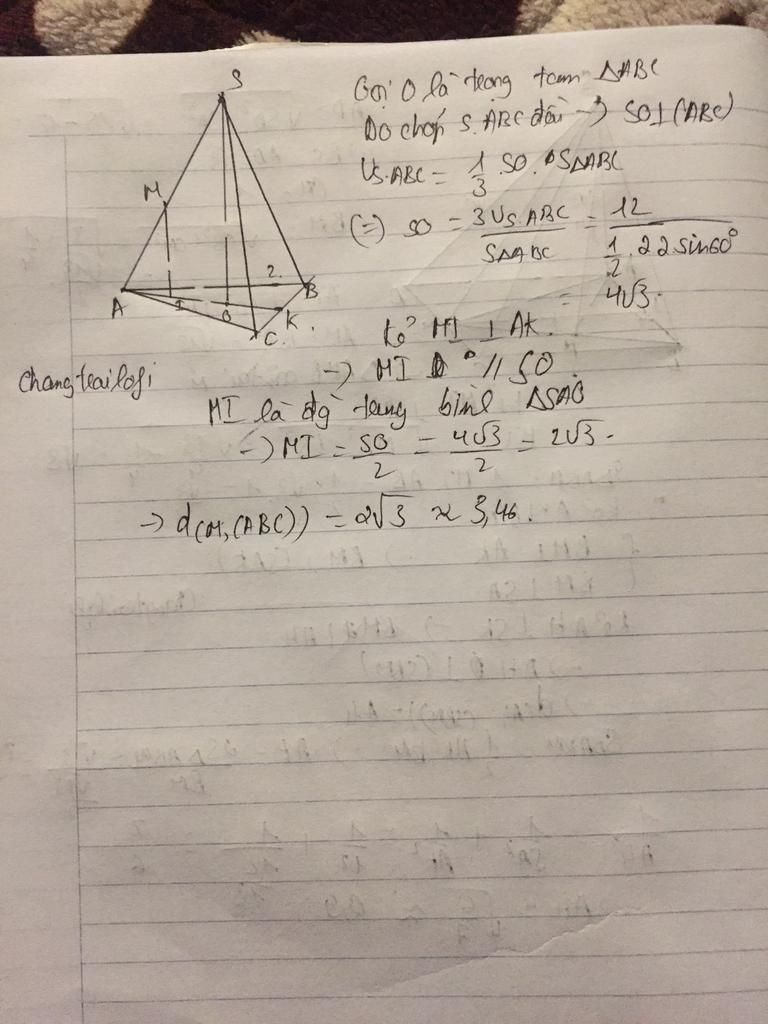 S
M
A
I
O
2.
B
K.
C.
Gọi O là trọng tam ΔABC
Do chóp S.ABC đều → SO⊥(ABC)
VS.ABC = 1/3 .SO. SΔABC
(=) SO = 3VS.ABC/SΔABC = 12/(1/2 .2 2 sin60°)
= 4√3.
Kẻ MI ⊥ AK.
→ MI // SO.
changtrailofi
MI là đg trung bình ΔSAO
→ MI = SO/2 = 4√3/2 = 2√3.
→ d(M,(ABC)) = 2√3 ≈ 3,46.